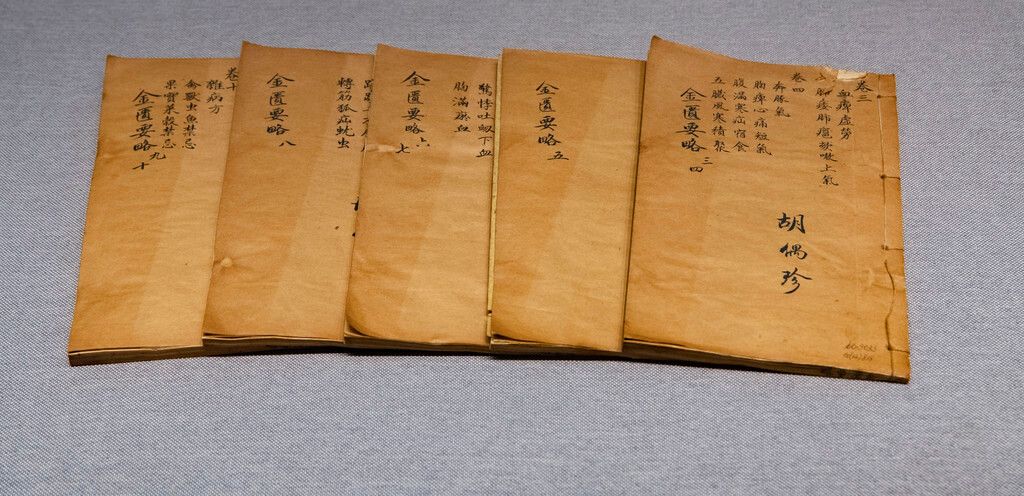 卷三
血痺虛勞
肺痿肺癰欬嗽上氣
卷四
奔豚氣
胸痺心痛短氣
腹滿寒疝宿食
五臟風寒積聚
金匱要略三四
胡偶珍
金匱要略五
驚悸吐衄下血
胸滿瘀血
金匱要略六七
轉筋狐疝蚘虫
金匱要略八
卷十
雜病方
禽獸虫魚禁忌
果實菜穀禁忌
金匱要略九十